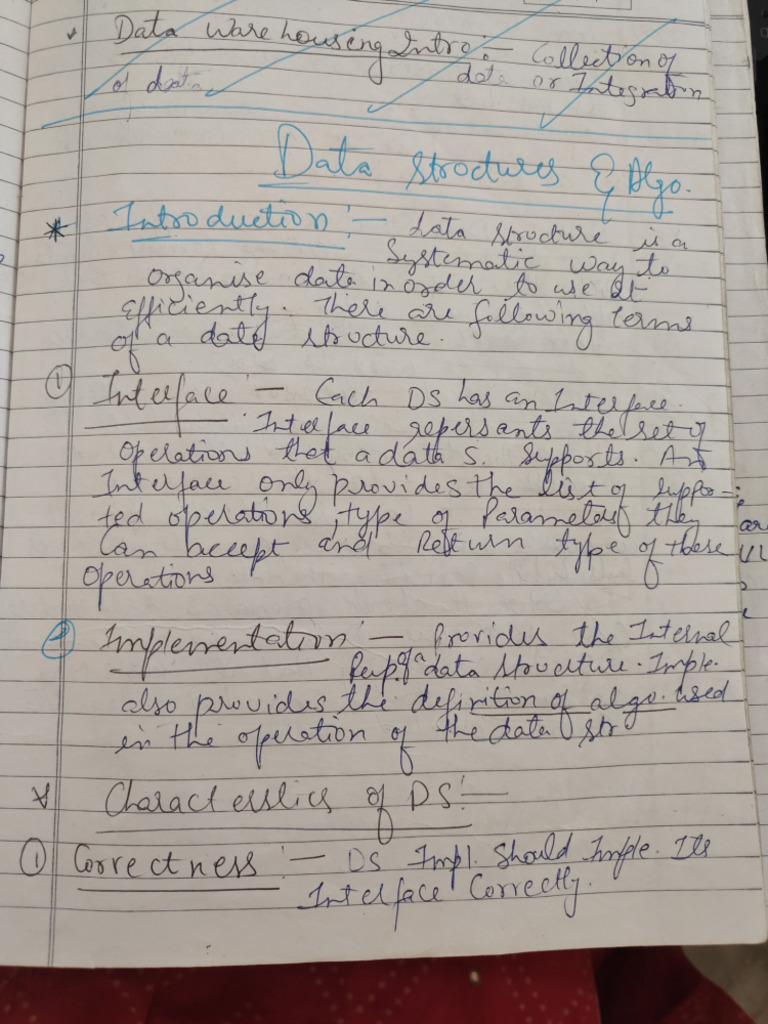 Data Warehousing Intro :- Collection of
of data data or Integration
Data Structures & Algo.
* Introduction :- data structure is a
systematic way to
organise data in order to use it
efficiently. There are following terms
of a data structure.
① Interface - Each DS has an Interface.
Interface repersants the set of
operations that a data s. supports. An
Interface only provides the list of suppo-
ted operations, type of Parameters they
can accept and Return type of these
operations
② Implementation - Provides the Internal
Rep. of a data structure. Imple.
also provides the definition of algo. used
in the operation of the data str
* Characterstics of DS :-
① Correctness :- DS Impl. should Imple. Its
Interface Correctly.